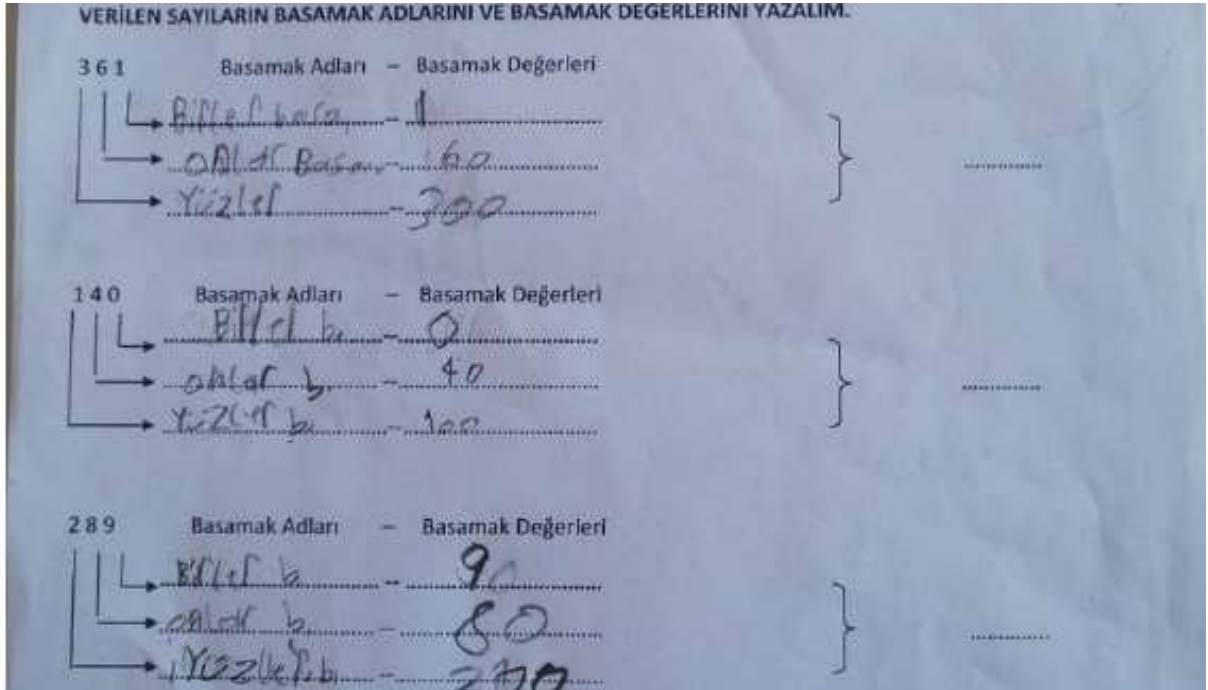 VERİLEN SAYILARIN BASAMAK ADLARINI VE BASAMAK DEĞERLERİNİ YAZALIM.
361 Basamak Adları – Basamak Değerleri
Birler basa – 1
onlar Basa – 60
Yüzler – 300
140 Basamak Adları – Basamak Değerleri
Birler b. – 0
onlar b. – 40
Yüzler b. – 100
289 Basamak Adları – Basamak Değerleri
Birler b. – 9
onlar b. – 80
Yüzler b. – 200